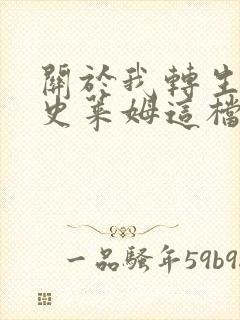 關於我轉生
史萊姆這檔
一品騷年59b9